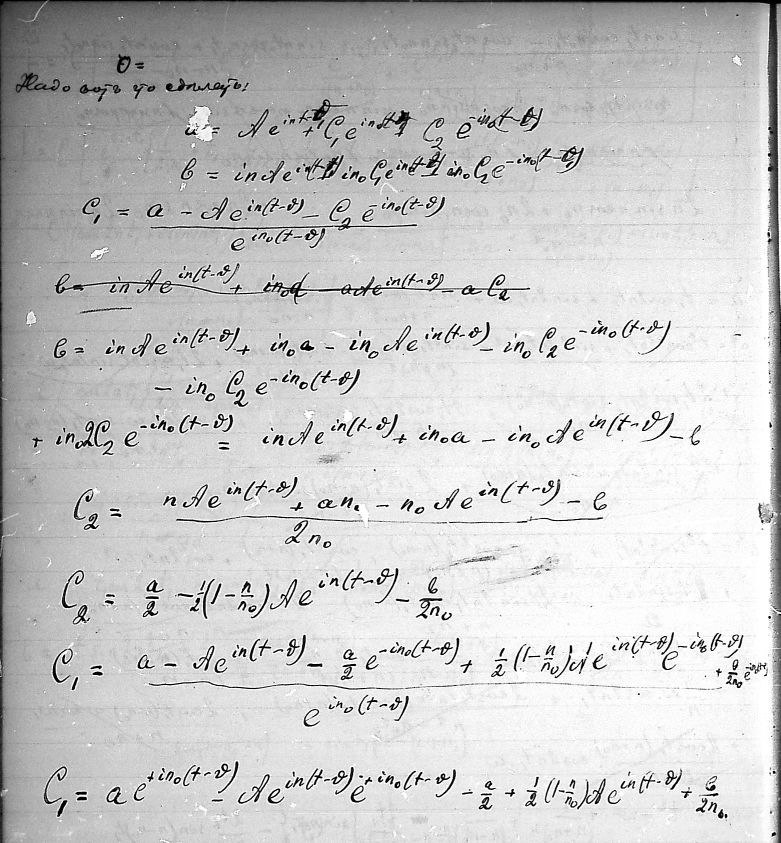 O=
Надо вотъ что сдѣлать:
a = Ae^{in(t-ϑ)} + C₁e^{in₀(t-ϑ)} C₂e^{-in₀(t-ϑ)}
b = inAe^{in(t-ϑ)} in₀C₁e^{in₀(t-ϑ)} - in₀C₂e^{-in₀(t-ϑ)}
C₁ = (a - Ae^{in(t-ϑ)} - C₂e^{-in₀(t-ϑ)}) / e^{in₀(t-ϑ)}
b = inAe^{in(t-ϑ)} + in₀a - aAe^{in(t-ϑ)} - aC₂
b = inAe^{in(t-ϑ)} + in₀a - in₀Ae^{in(t-ϑ)} - in₀C₂e^{-in₀(t-ϑ)}
- in₀C₂e^{-in₀(t-ϑ)}
+ in₀2C₂e^{-in₀(t-ϑ)} = inAe^{in(t-ϑ)} + in₀a - in₀Ae^{in(t-ϑ)} - b
C₂ = (nAe^{in(t-ϑ)} + an₀ - n₀Ae^{in(t-ϑ)} - b) / 2n₀
C₂ = a/2 - ½(1-n/n₀)Ae^{in(t-ϑ)} - b/2n₀
C₁ = (a - Ae^{in(t-ϑ)} - a/2 e^{-in₀(t-ϑ)} + ½(1-n/n₀)Ae^{in(t-ϑ)}e^{-in₀(t-ϑ)} + b/2n₀ e^{-in₀(t-ϑ)}) / e^{in₀(t-ϑ)}
C₁ = ae^{+in₀(t-ϑ)} - Ae^{in(t-ϑ)}e^{+in₀(t-ϑ)} - a/2 + ½(1-n/n₀)Ae^{in(t-ϑ)} + b/2n₀.